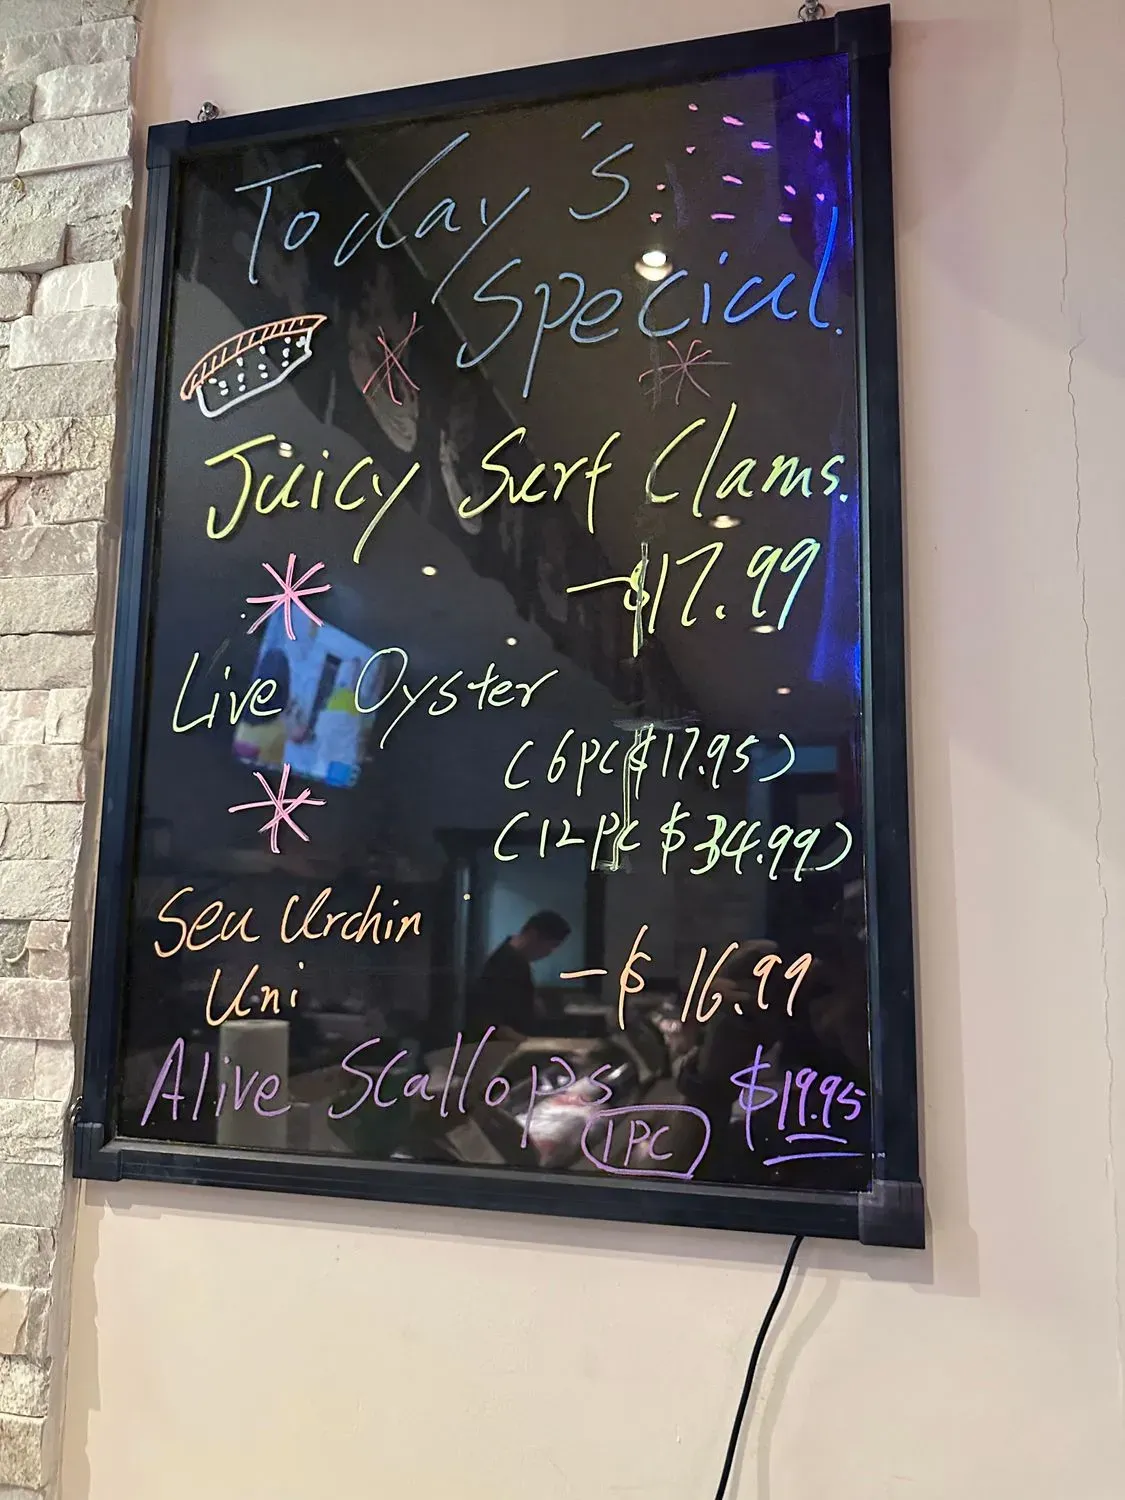 Today's
Special.
Juicy Surf Clams.
-$17.99
Live Oyster
(6PC $17.95)
(12PC $34.99)
Sea Urchin
Uni
-$ 16.99
Alive Scallops $19.95
1PC